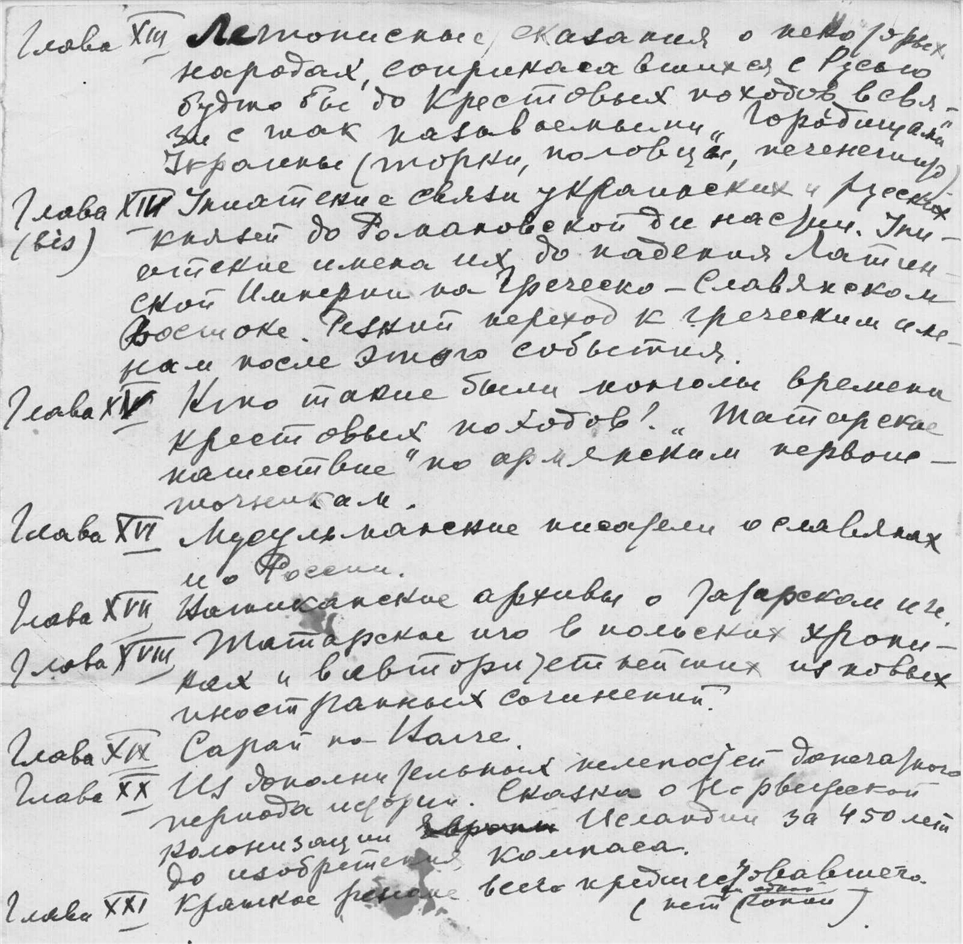 Глава XIII Летописные сказания о некоторых
народах, соприкасавшихся с Русью
будто бы до Крестовых походов в свя-
зи с так называемыми „Городищами"
Украины (торки, половцы, печенеги)
Глава XIV Униатские связи украинских и русских
(bis) князей до Романовской династии. Уни-
атские имена их до падения Латин-
ской Империи на Греческо-Славянском
Востоке. Резкий переход к греческим име-
нам после этого события.
Глава XV Кто такие были монголы времени
крестовых походов? „Татарское
нашествие" по армянским первоис-
точникам.
Глава XVI Мусульманские писатели о славянах
и о России.
Глава XVII Ватиканские архивы о татарском иге.
Глава XVIII Татарское иго в польских хрони-
ках и в авторитетнейших из новых
иностранных сочинений.
Глава XIX Сарай на Волге.
Глава XX Из дополнительных нелепостей допечатного
периода истории. Сказка о Норвежской
колонизации Исландии за 450 лет
до изобретения компаса.
Глава XXI Краткое резюме всего предшествовавшего.
(нет ни одной копии)